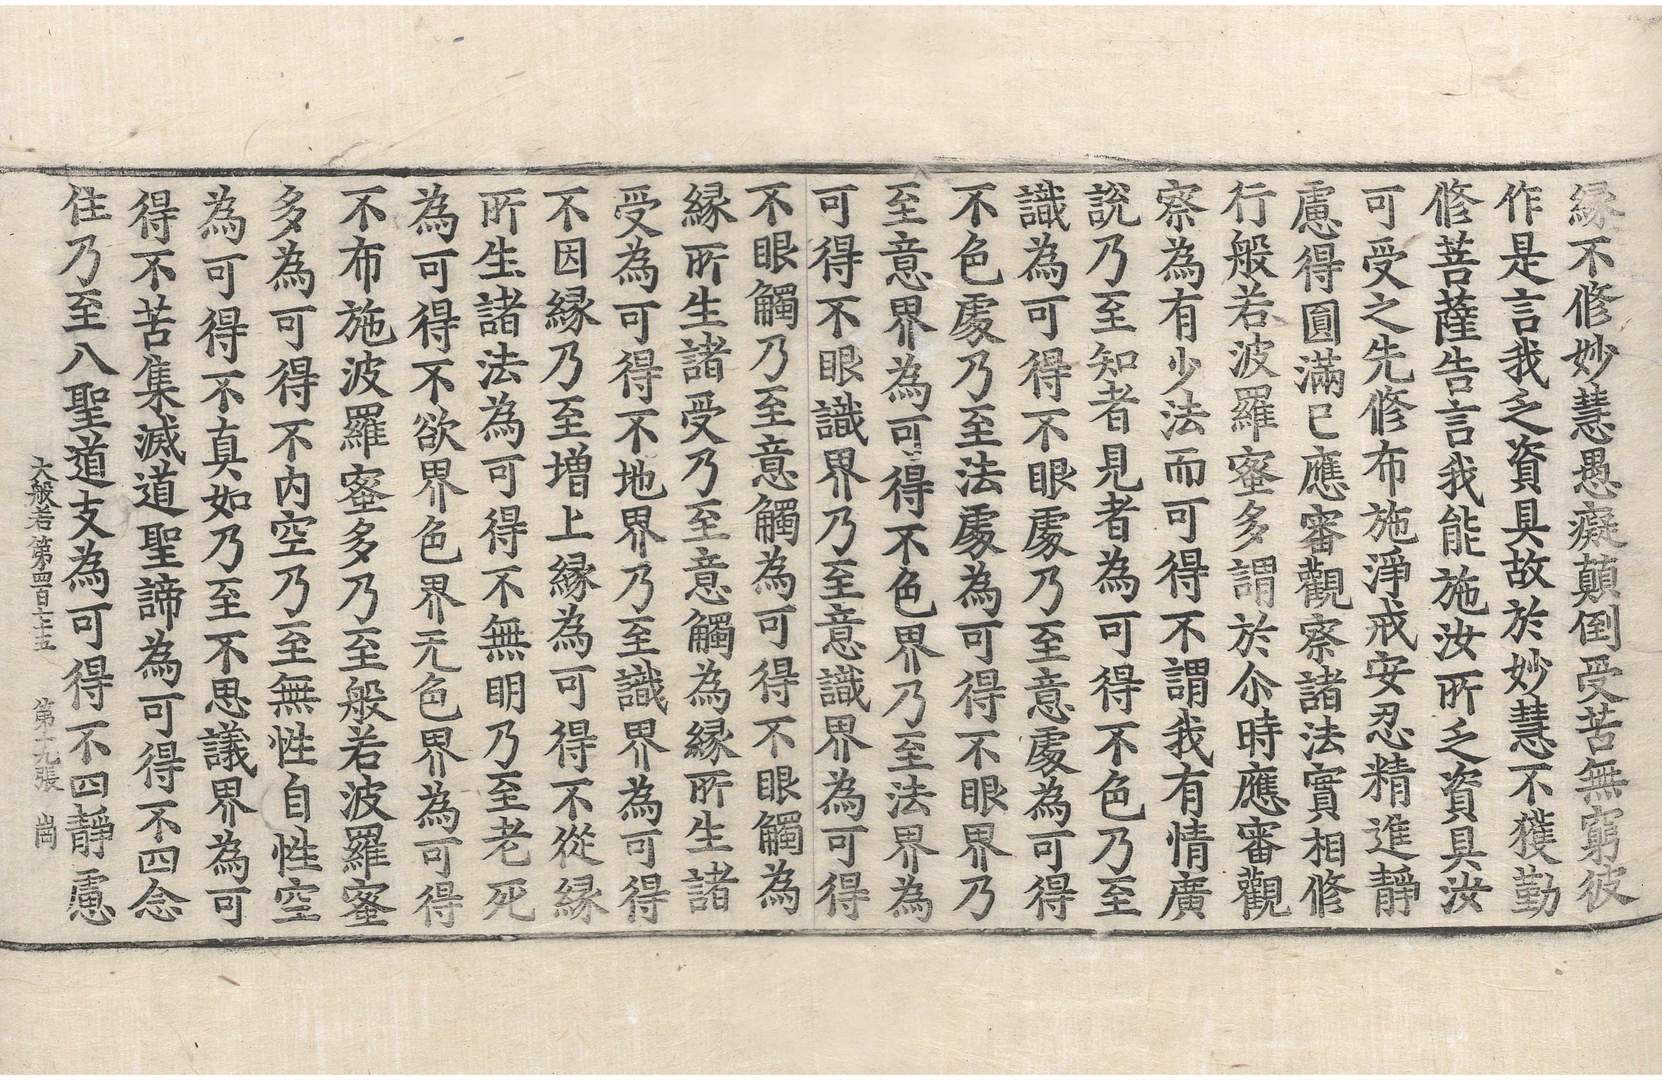 縁不修妙慧愚癡顛倒受苦無窮彼
作是言我乏資具故於妙慧不獲勤
修菩薩告言我能施汝所乏資具汝
可受之先修布施淨戒安忍精進靜
慮得圓滿已應審觀察諸法實相修
行般若波羅蜜多謂於尒時應審觀
察為有少法而可得不謂我有情廣
說乃至知者見者為可得不色乃至
識為可得不眼處乃至意處為可得
不色處乃至法處為可得不眼界乃
至意界為可得不色界乃至法界為
可得不眼識界乃至意識界為可得
不眼觸乃至意觸為可得不眼觸為
縁所生諸受乃至意觸為縁所生諸
受為可得不地界乃至識界為可得
不因縁乃至增上縁為可得不從縁
所生諸法為可得不無明乃至老死
為可得不欲界色界无色界為可得
不布施波羅蜜多乃至般若波羅蜜
多為可得不內空乃至無性自性空
為可得不真如乃至不思議界為可
得不苦集滅道聖諦為可得不四念
住乃至八聖道支為可得不四靜慮
大般若第四百六十五 第十九張 崗